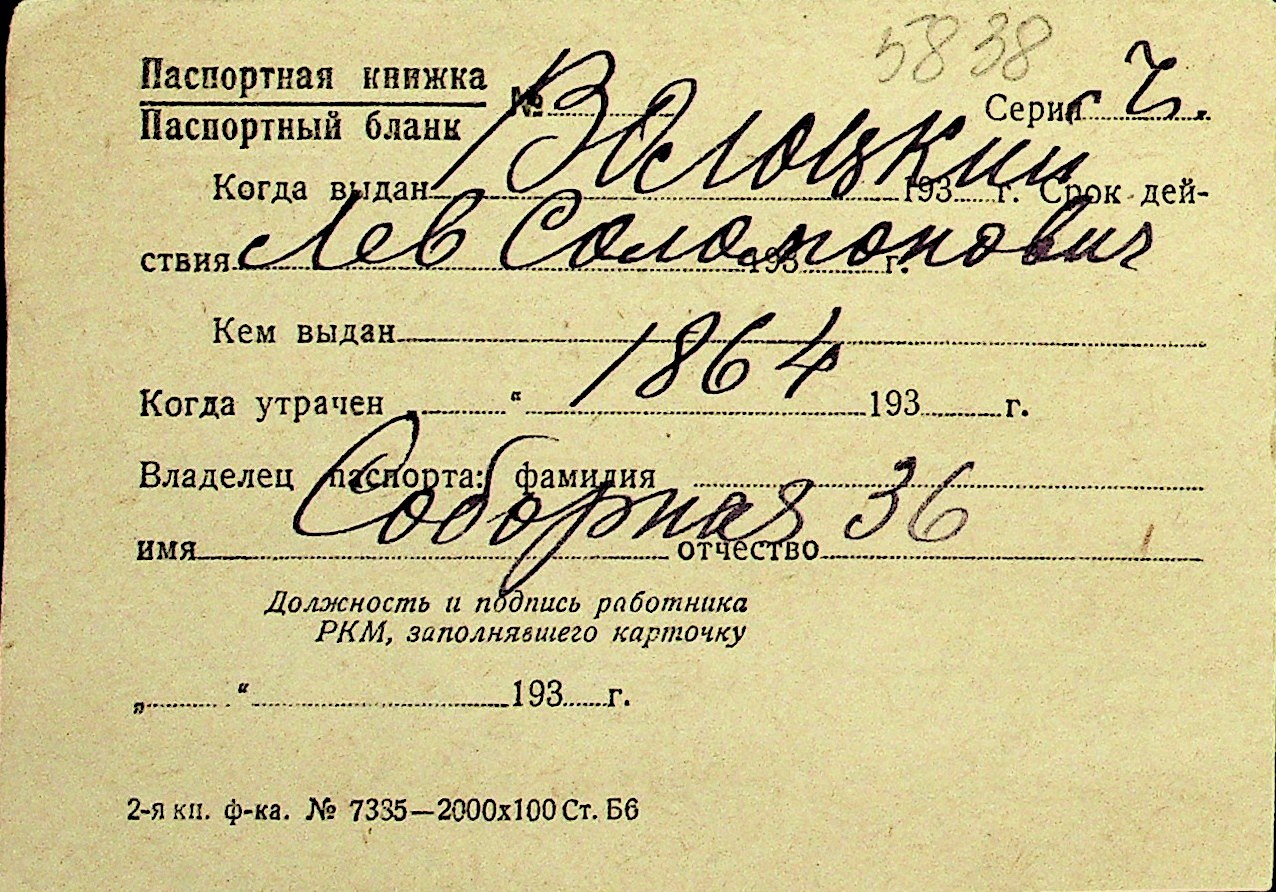 5838
Паспортная книжка
Паспортный бланк № Серия
Волоцкий
Когда выдан 193 г. Срок дей-
Лев Соломонович
ствия 193 г.
Кем выдан
1864
Когда утрачен „ “ 193 г.
Владелец паспорта: фамилия
Соборная 36
имя отчество
Должность и подпись работника
РКМ, заполнявшего карточку
„ “ 193 г.
2-я кн. ф-ка. № 7335—2000х100 Ст. Б6